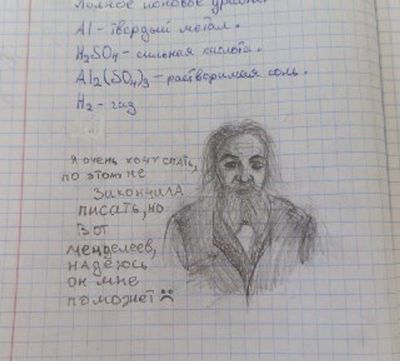 Полное ионовое уравне
Al - твердый метал.
H₂SO₄ - сильная кислота.
Al₂(SO₄)₃ - растворимая соль.
H₂ - газ
Я очень хочу спать,
по этому не
закончила
писать, но
вот
менделеев,
надеюсь
он мне
поможет ☹